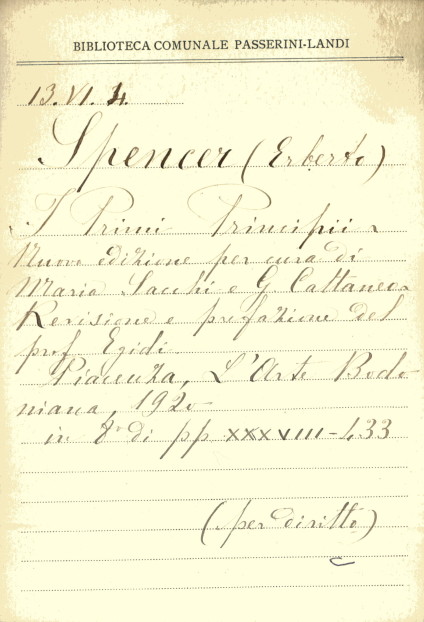 BIBLIOTECA COMUNALE PASSERINI-LANDI
13. VI. 4.
Spencer (Erberto)
I Primi Principii -
Nuova edizione per cura di
Maria Sacchi e G. Cattaneo -
Revisione e prefazione del
prof. Egidi.
Piacenza, L'Arte Bodo
niana, 1920
in 8° di pp XXXVIII-433
(per diritto)